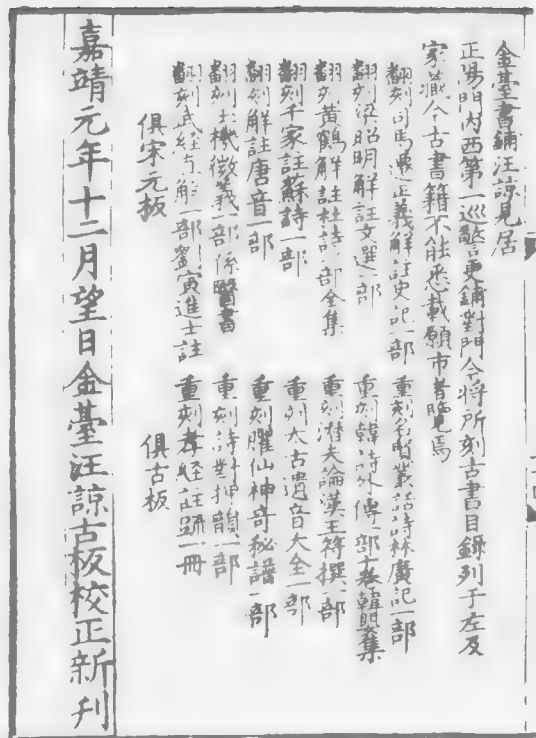 金臺書鋪汪諒見居
正陽門内西第一巡警更鋪對門今將所刻古書目錄列于左及
家藏今古書籍不能悉載願市者覽焉
翻刻司馬遷正義解註史記一部
翻刻梁昭明解註文選一部
翻刻黃鶴解註杜詩一部全集
翻刻千家註蘇詩一部
翻刻解註唐音一部
翻刻玉機微義一部係醫書
翻刻武經直解一部劉寅進士註
俱宋元板
重刻名賢叢話詩林廣記一部
重刻韓詩外傳一部十卷韓嬰集
重刻潛夫論漢王符撰一部
重刻太古遺音大全一部
重刻臞仙神奇秘譜一部
重刻詩對押韻一部
重刻孝經註疏一冊
俱古板
嘉靖元年十二月望日金臺汪諒古板校正新刊